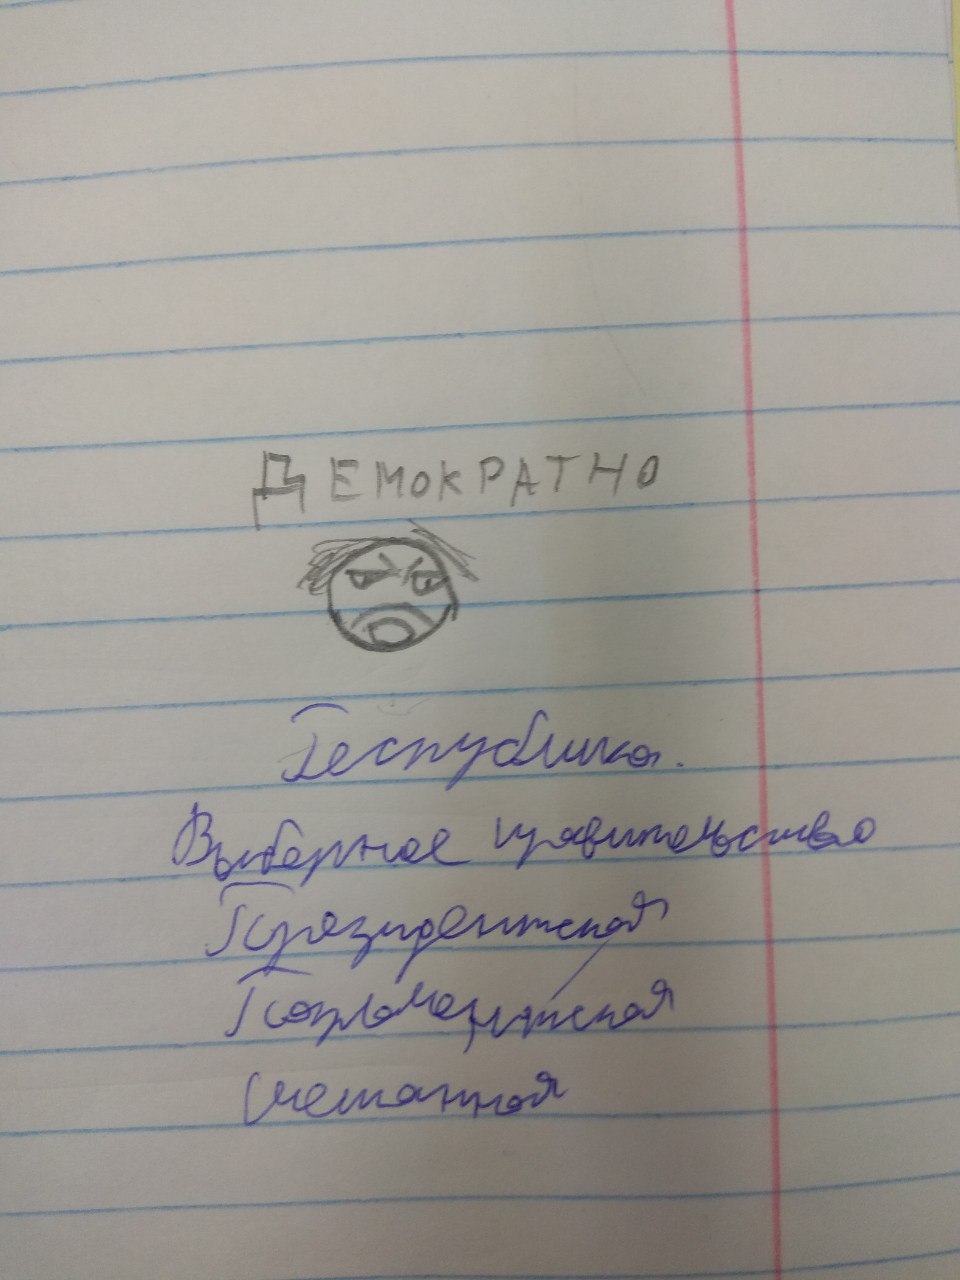 ДЕМОКРАТНО
Республика.
Выборное правительство
Президентская
Парламентская
Смешанная